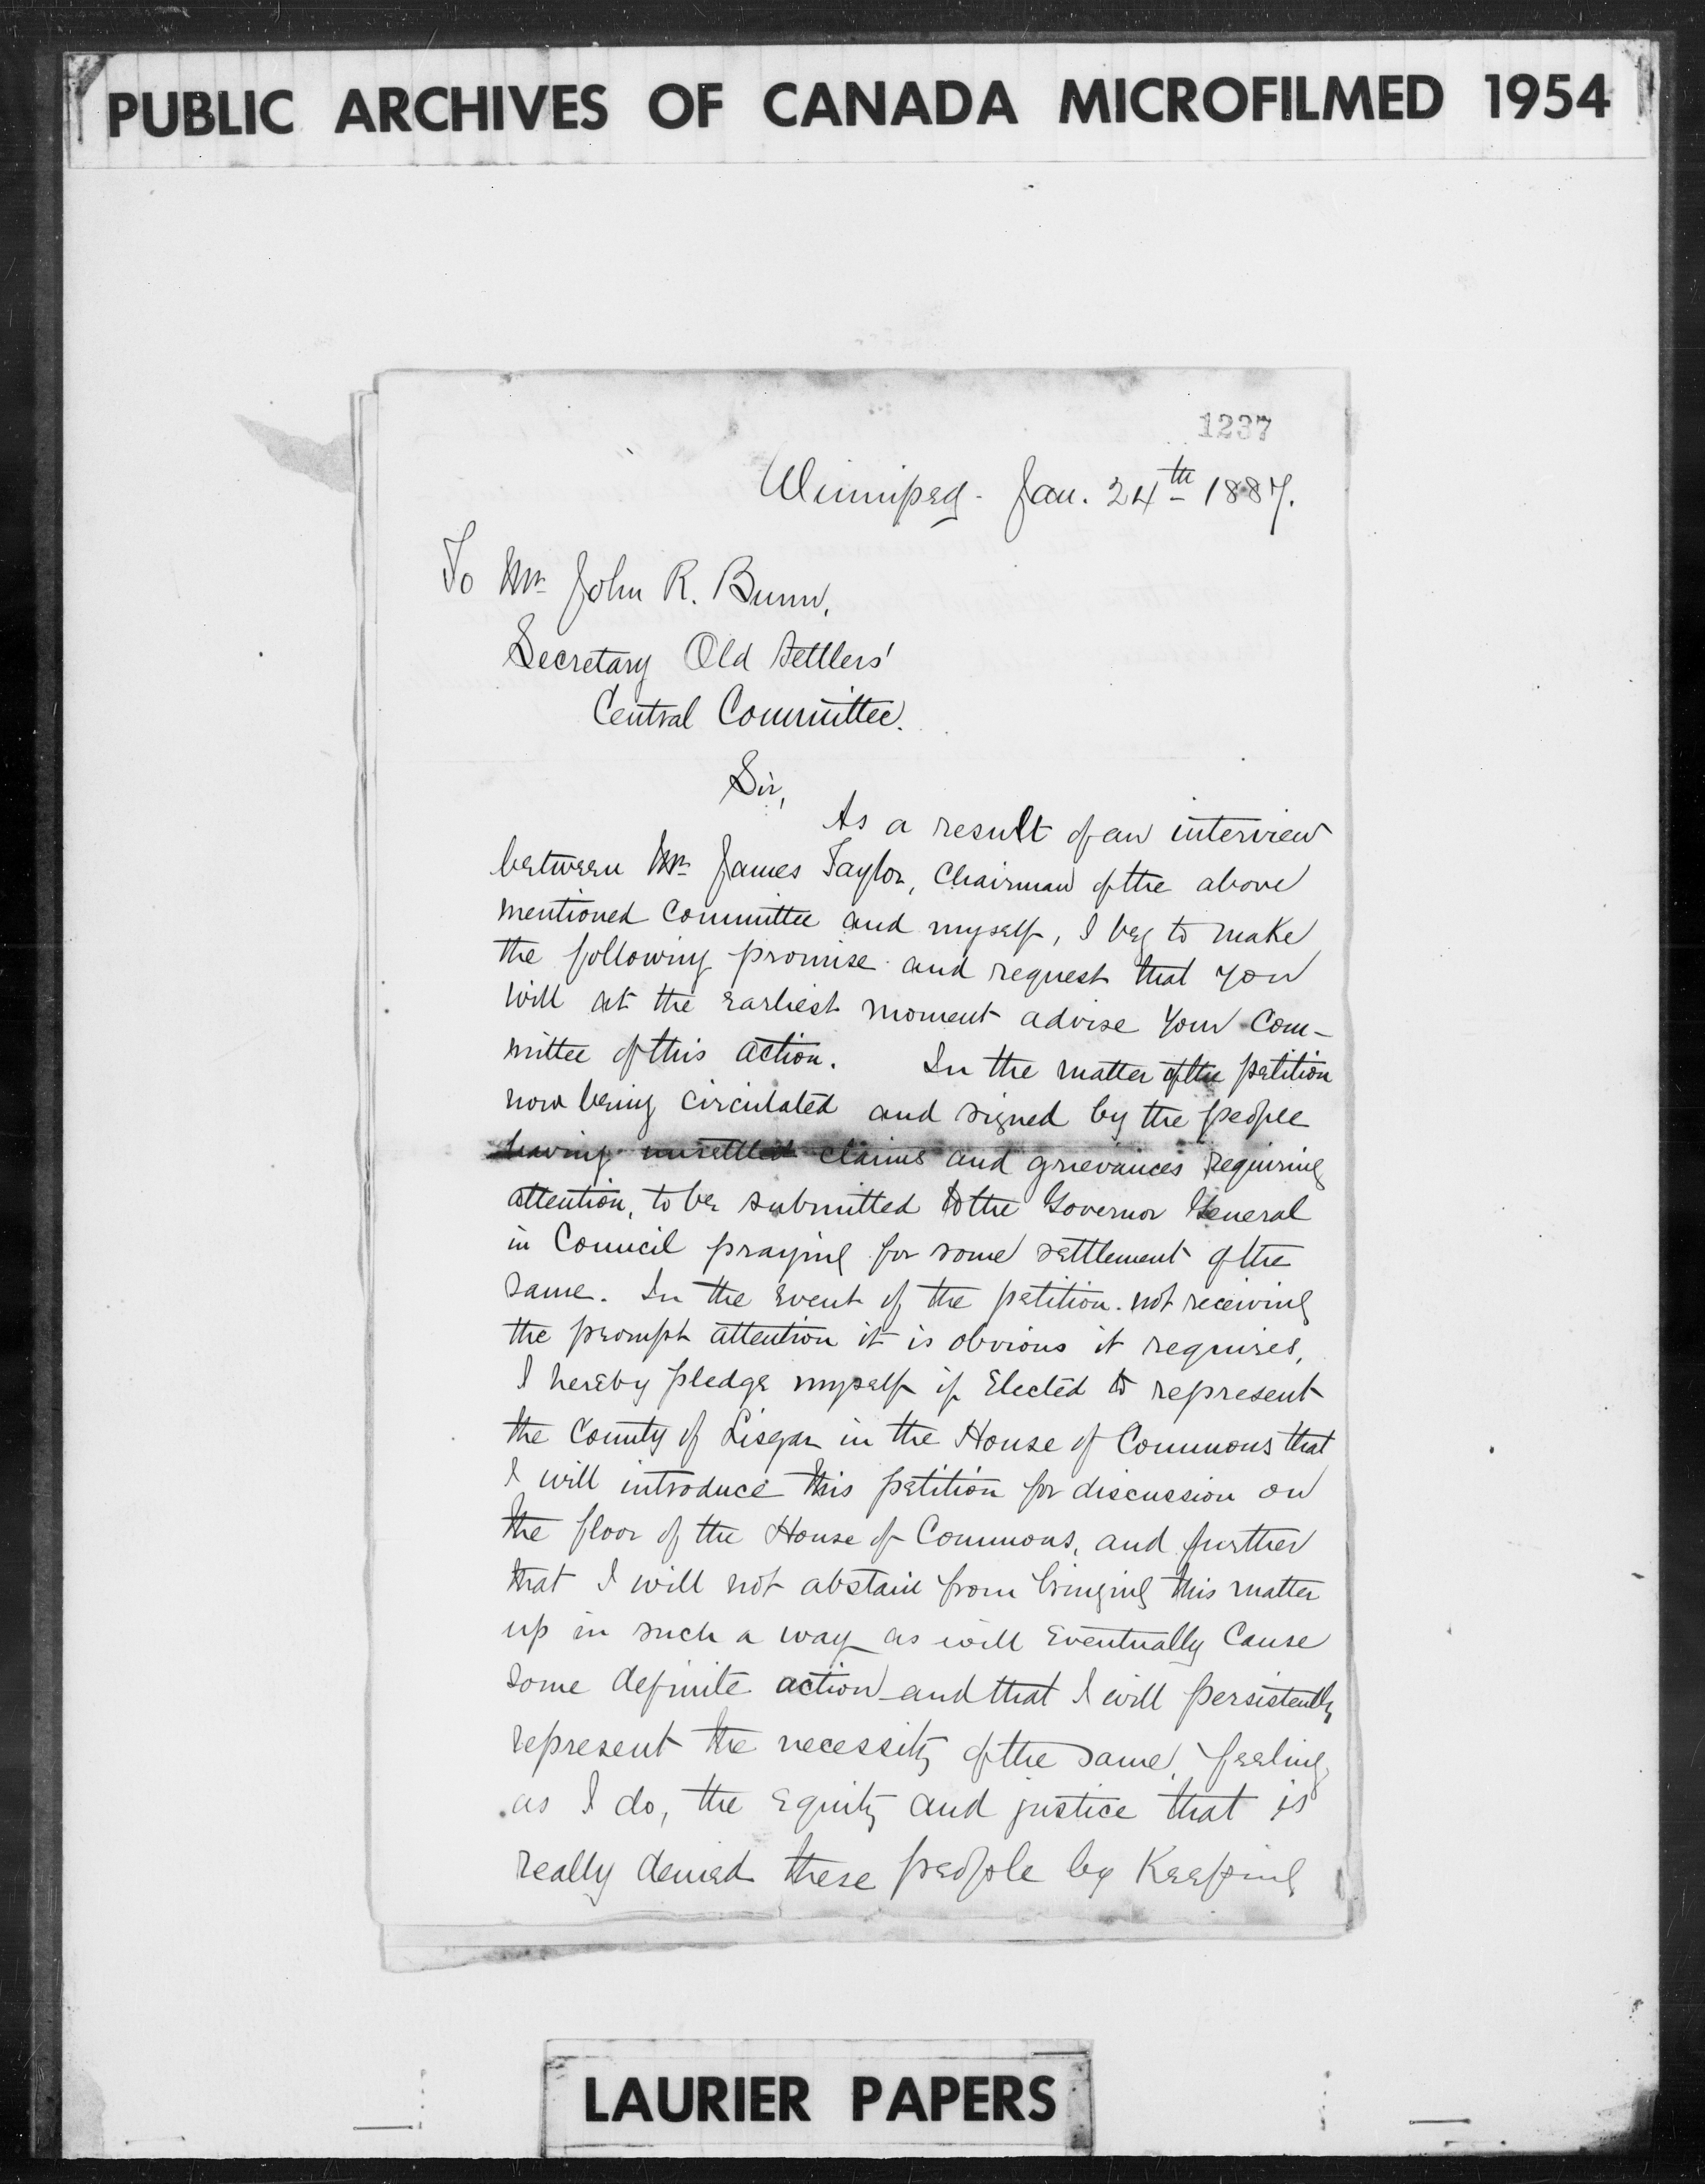 PUBLIC ARCHIVES OF CANADA MICROFILMED 1954
1237
Winnipeg - Jan. 24th 1887.
To Mr John R. Bunn,
Secretary Old Settlers'
Central Committee.
Sir,
As a result of an interview
between Mr James Taylor, Chairman of the above
mentioned Committee and myself, I beg to make
the following promise and request that you
will at the earliest moment advise your Com-
mittee of this action. In the matter of the petition
now being circulated and signed by the people
having unsettled claims and grievances requiring
attention, to be submitted to the Governor General
in Council praying for some settlement of the
same. In the event of the petition not receiving
the prompt attention it is obvious it requires,
I hereby pledge myself if Elected to represent
the County of Lisgar in the House of Commons that
I will introduce this petition for discussion on
the floor of the House of Commons, and further
that I will not abstain from bringing this matter
up in such a way as will Eventually Cause
some definite action and that I will persistently
represent the necessity of the same, feeling,
as I do, the Equity and justice that is
really denied these people by Keeping
LAURIER PAPERS